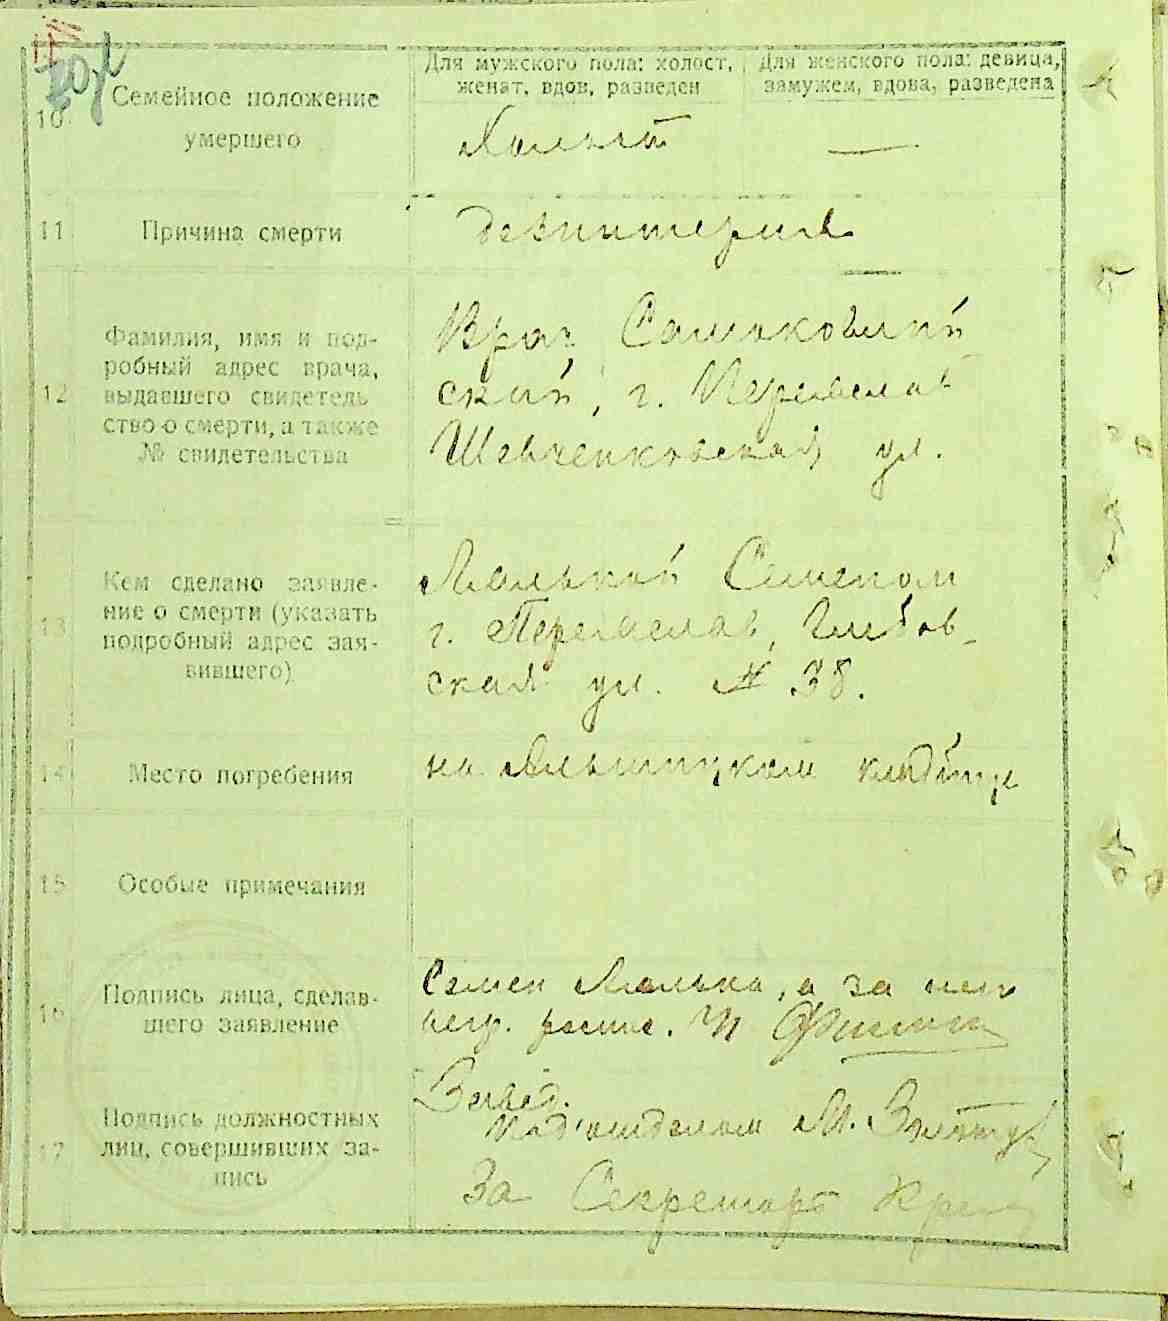 10
Семейное положение
умершего
Для мужского пола: холост,
женат, вдов, разведен
Для женского пола: девица,
замужем, вдова, разведена
Холост
—
11
Причина смерти
дезинтерия
12
Фамилия, имя и под-
робный адрес врача,
выдавшего свидетель
ство о смерти, а также
№ свидетельства
Врач
ский, г. Переяслав
Шевченковская ул.
13
Кем сделано заявле-
ние о смерти (указать
подробный адрес зая-
вившего)
Лялькой Семеном
г. Переяслав, Глибов-
ская ул. № 38.
14
Место погребения
на кладбище
15
Особые примечания
16
Подпись лица, сделав-
шего заявление
Семен Лялька, а за него
негр. распис.
17
Подпись должностных
лиц, совершивших за-
пись
Завед.
под'отделом М.
За Секретаря